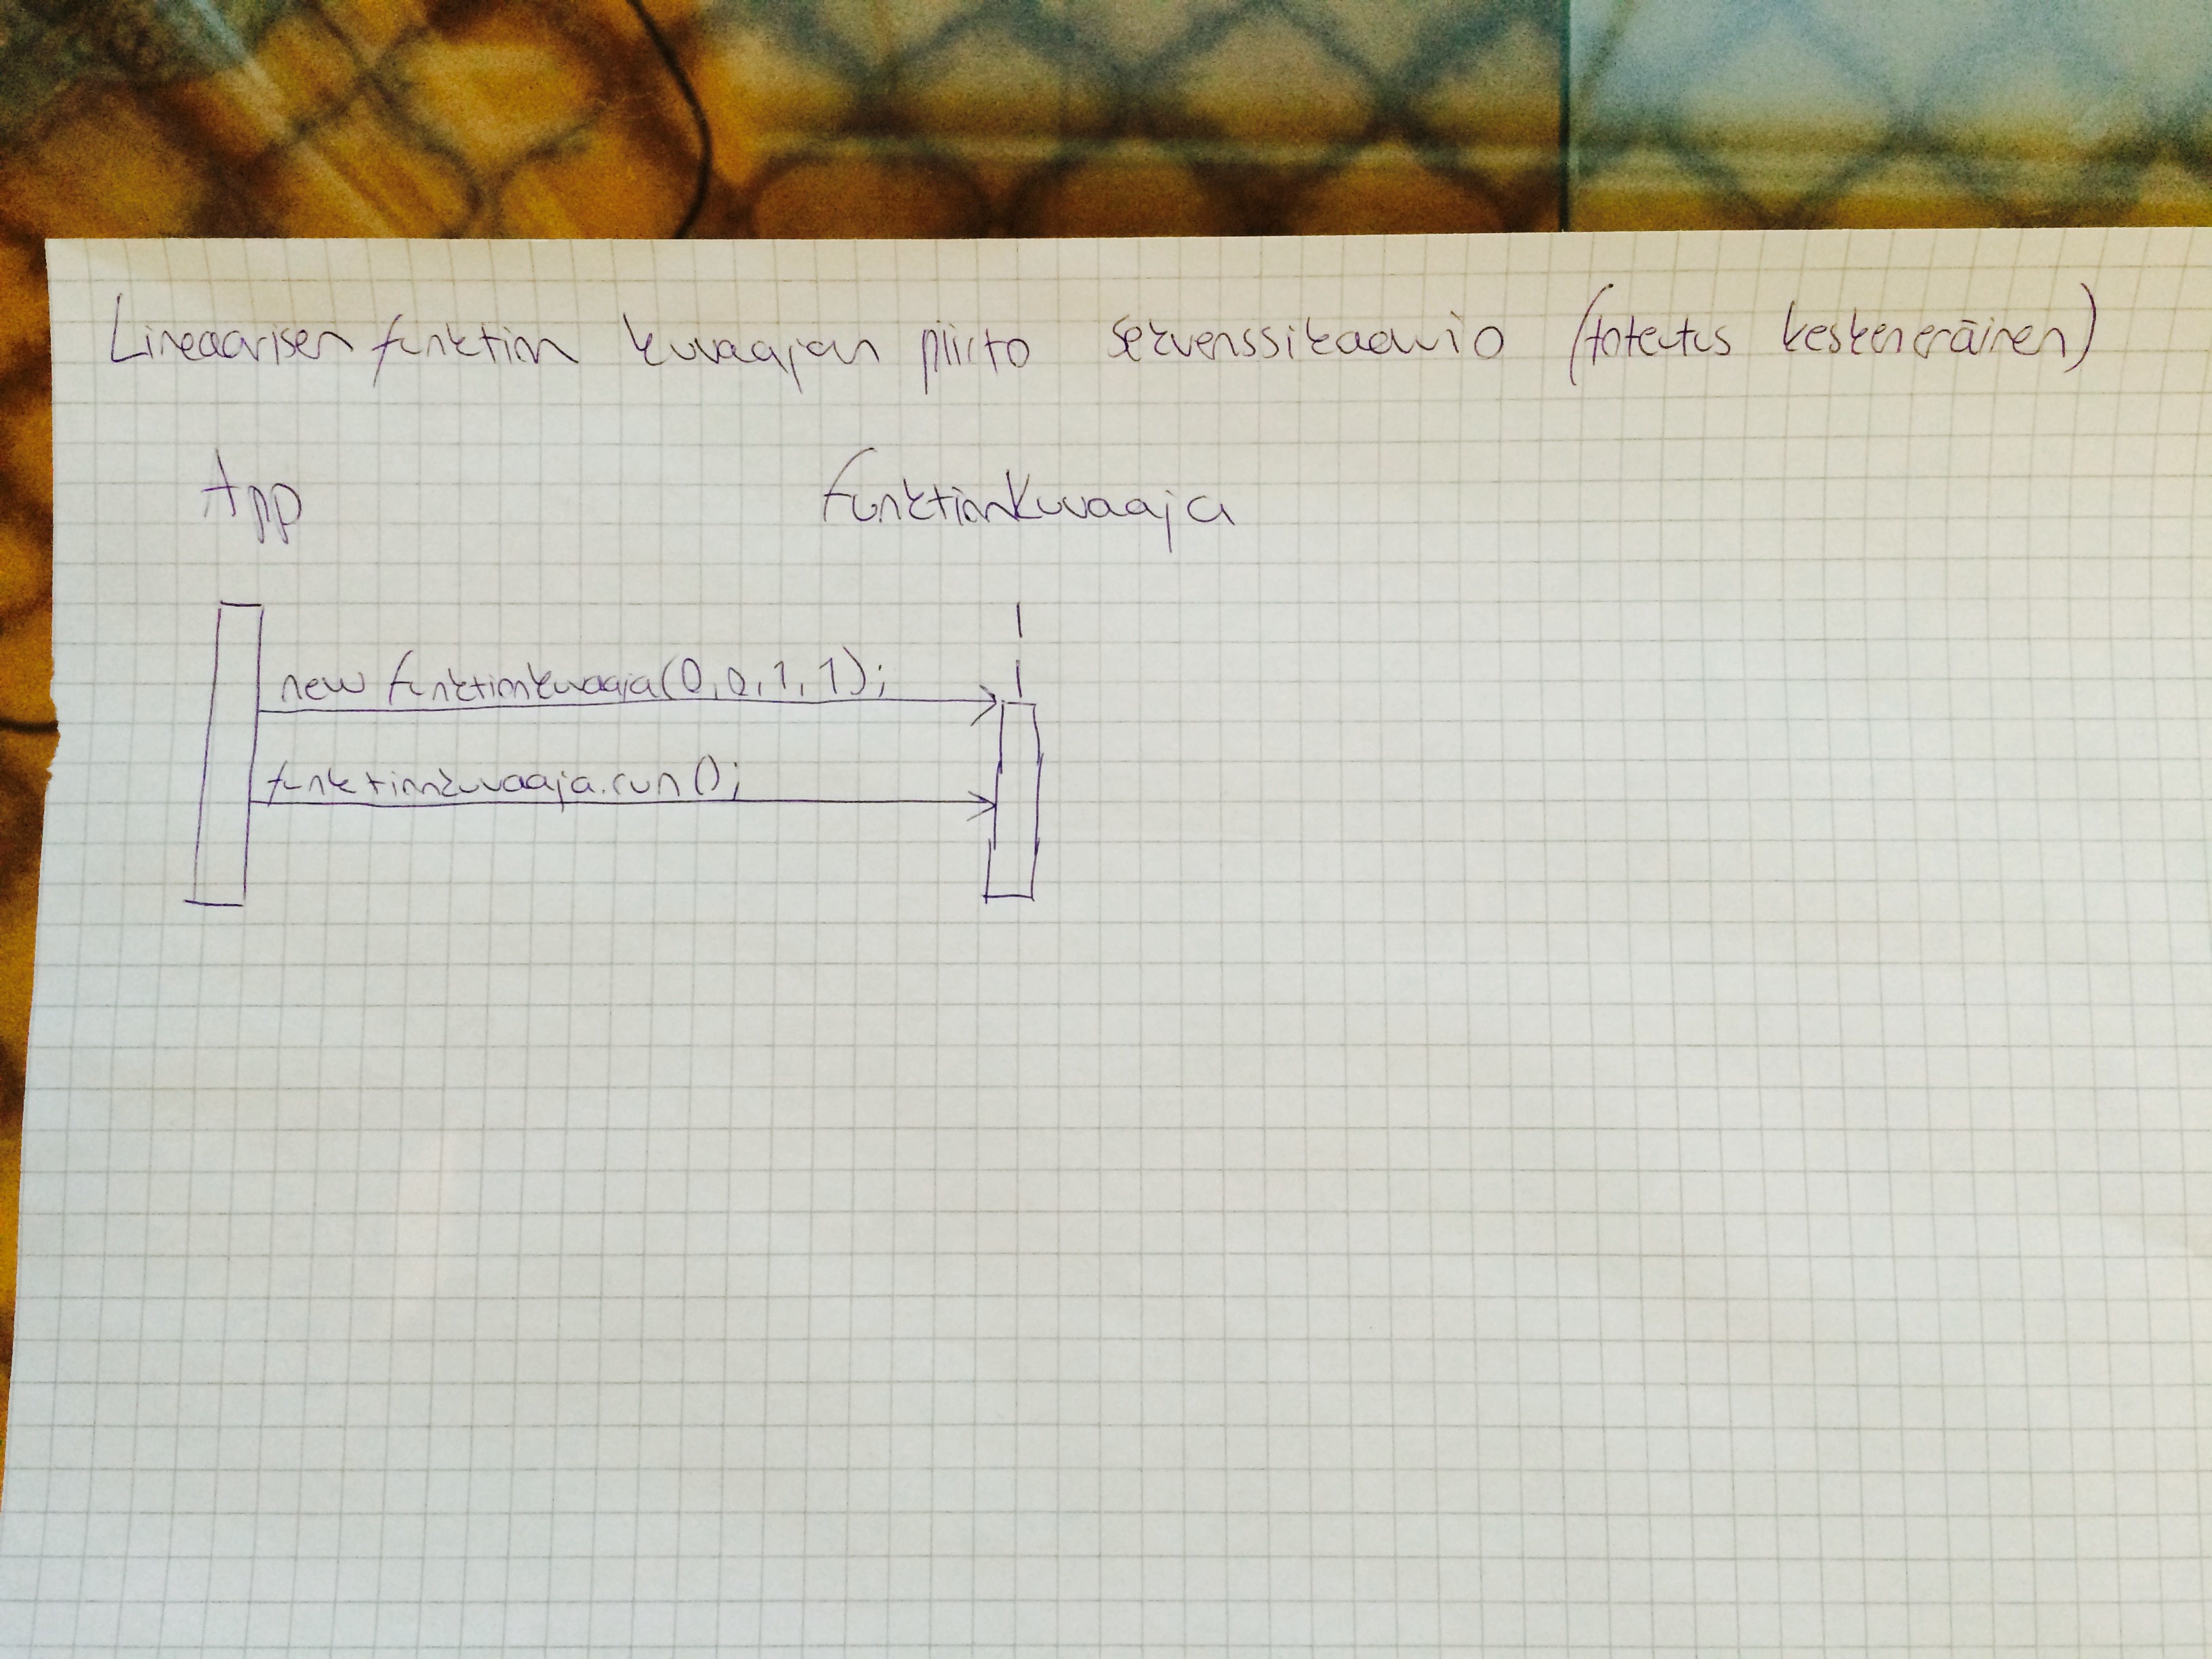 Lineaarisen funktion kuvaajan piirto sekvenssikaavio (toteutus keskeneräinen)
App FunktionKuvaaja
new funktionkuvaaja(0,0,1,1);
funktionkuvaaja.run();